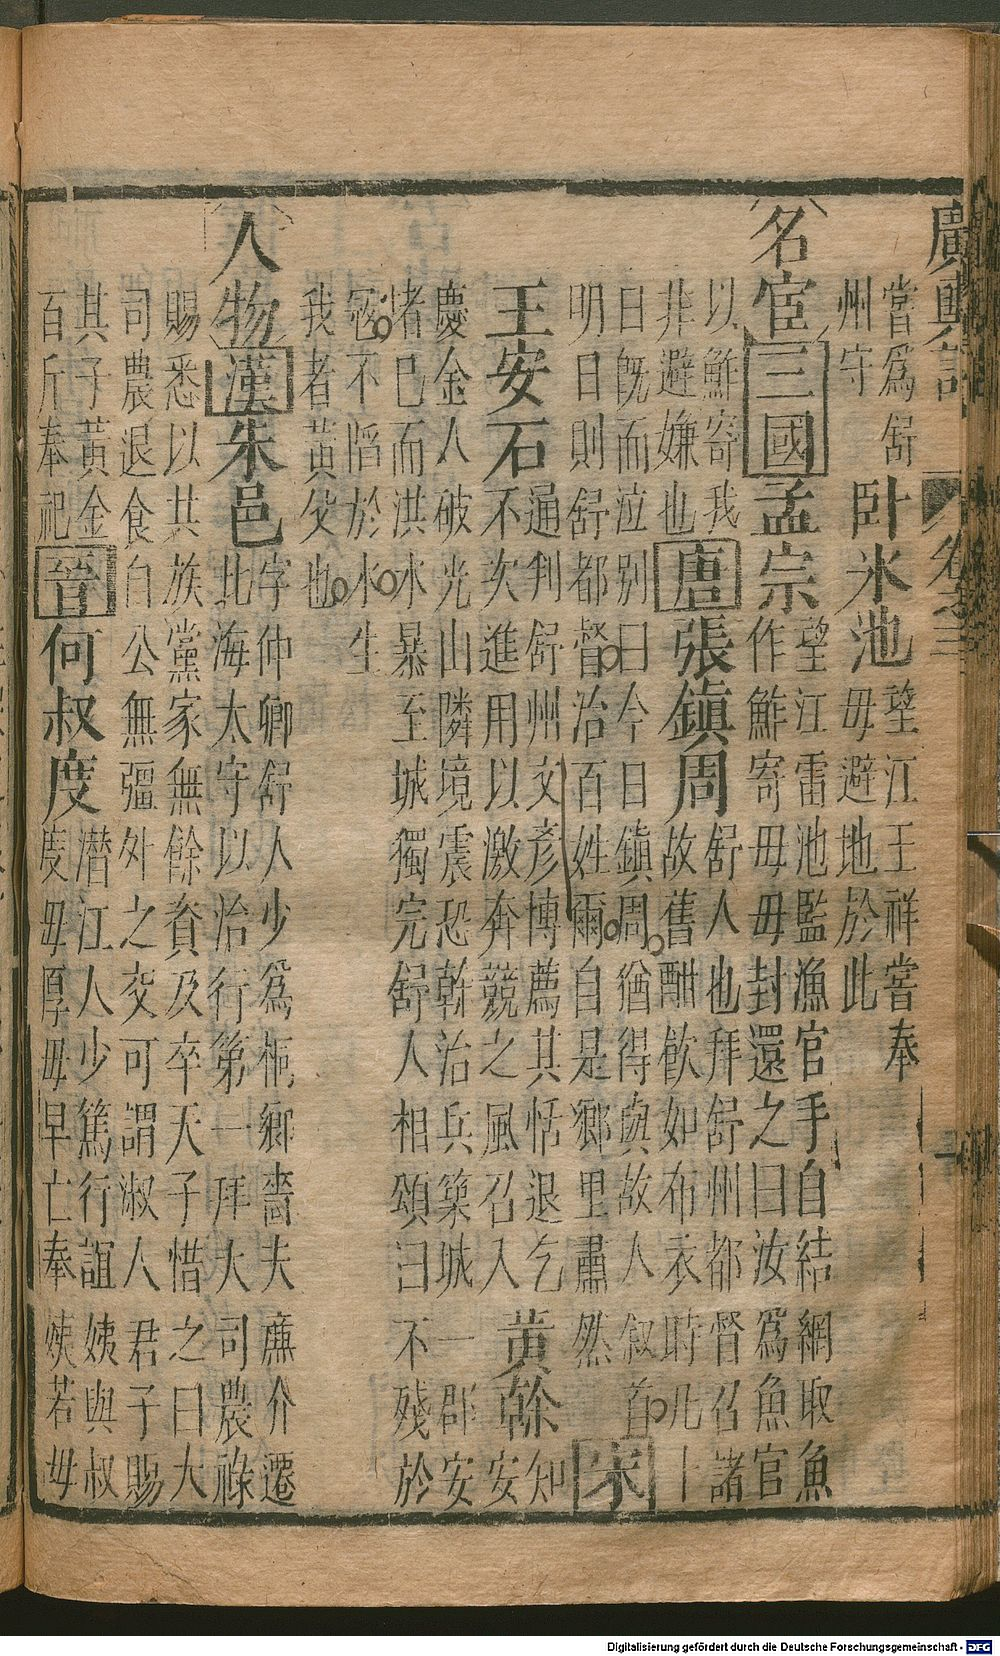 廣輿記 卷之二
當爲舒
州守
卧氷池
望江王祥嘗奉
毋避地於此
名宦 三國 孟宗
望江雷池監漁官手自結網取魚
作鮓寄毋毋封還之曰汝爲魚官
以鮓寄我
非避嫌也
唐 張鎮周
舒人也拜舒州都督召諸
故舊酣飲如布衣時凡十
日既而泣別曰今日鎮周猶得與故人叙首
明日則舒都督治百姓爾自是鄉里肅然
宋
王安石
通判舒州文彦博薦其恬退乞
不次進用以激奔競之風召入
黄榦
知
安
慶金人破光山隣境震恐榦治兵築城一郡安
堵巳而洪水暴至城獨完舒人相頌曰不殘於
寇不陷於水生
我者黄父也
人物 漢 朱邑
字仲卿舒人少爲桐鄉嗇夫廉介遷
北海太守以治行第一拜大司農祿
賜悉以共族黨家無餘資及卒天子惜之曰大
司農退食自公無疆外之交可謂淑人君子賜
其子黃金
百斤奉祀
晉 何叔度
潛江人少篤行誼姨與叔
度毋厚毋早亡奉姨若毋
Digitalisierung gefördert durch die Deutsche Forschungsgemeinschaft - DFG